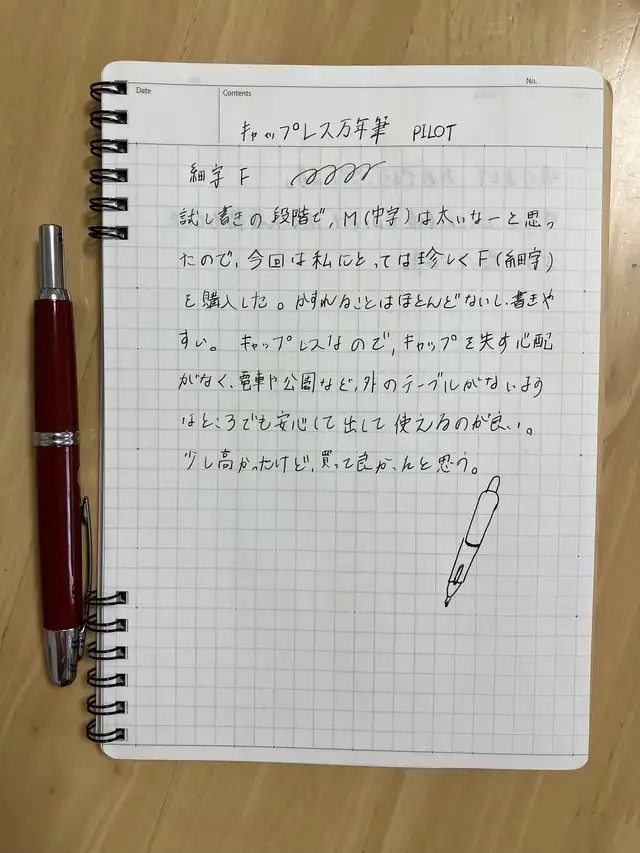 Date
Contents
No.
キャップレス万年筆 PILOT
細字 F
試し書きの段階で、M(中字)は太いなーと思っ
たので、今回は私にとっては珍しくF(細字)
を購入した。かすれることはほとんどないし、書きや
すい。キャップレスなので、キャップを失す心配
がなく、電車や公園など、外のテーブルがないよう
なところでも安心して出して使えるのが良い。
少し高かったけど、買って良かったと思う。